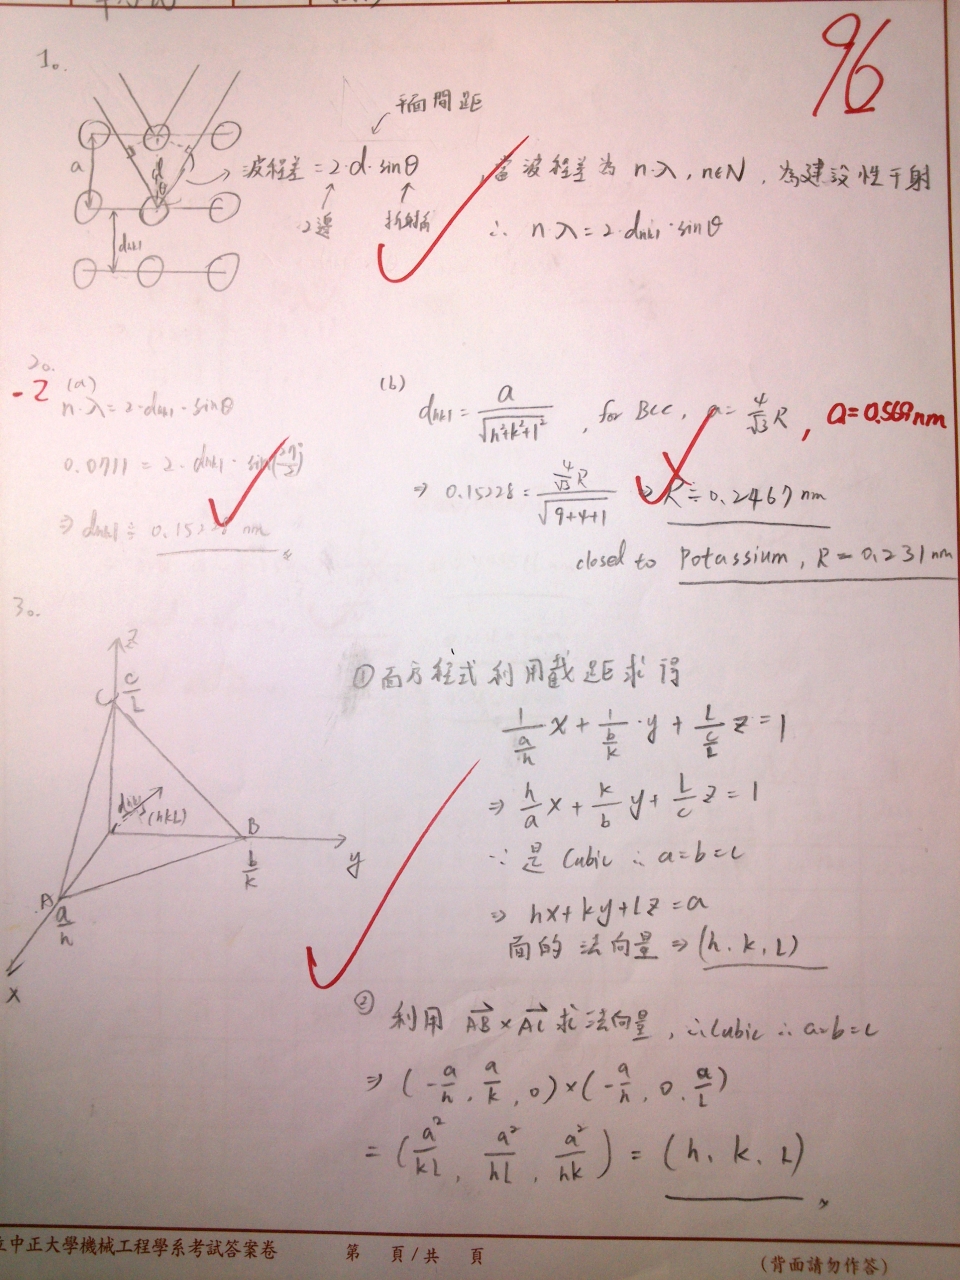 96
1.
平面間距
波程差 = 2·d·sinθ
2邊
折射角
當波程差為 n·λ, n∈N, 為建設性干射
∴ n·λ = 2·dhkl·sinθ
a
d
θ
dhkl
2.
-2
(a)
n·λ = 2·dhkl·sinθ
0.0711 = 2·dhkl·sin(27°/2)
⇒ dhkl ≑ 0.15228 nm
(b)
dhkl = a/√(h²+k²+l²), for BCC, a = 4/√3 R, a=0.569nm
⇒ 0.15228 = (4/√3 R)/√(9+4+1) ⇒ R ≑ 0.2467 nm
closed to Potassium, R = 0.231 nm
3.
z
C c/L
dhkl
(hkL)
B
b/k
y
A
a/h
x
① 面方程式利用截距求得
1/(a/h) x + 1/(b/k)·y + L/(c/L) z = 1
⇒ h/a x + k/b y + L/c z = 1
∵ 是 Cubic ∴ a=b=c
⇒ hx+ky+Lz=a
面的法向量 ⇒ (h, k, L)
② 利用 AB × AC 求法向量, ∵ Cubic ∴ a=b=c
⇒ (-a/h, a/k, 0) × (-a/h, 0, a/L)
= (a²/kL, a²/hL, a²/hk) = (h, k, L)
立中正大學機械工程學系考試答案卷
第 頁/共 頁
(背面請勿作答)